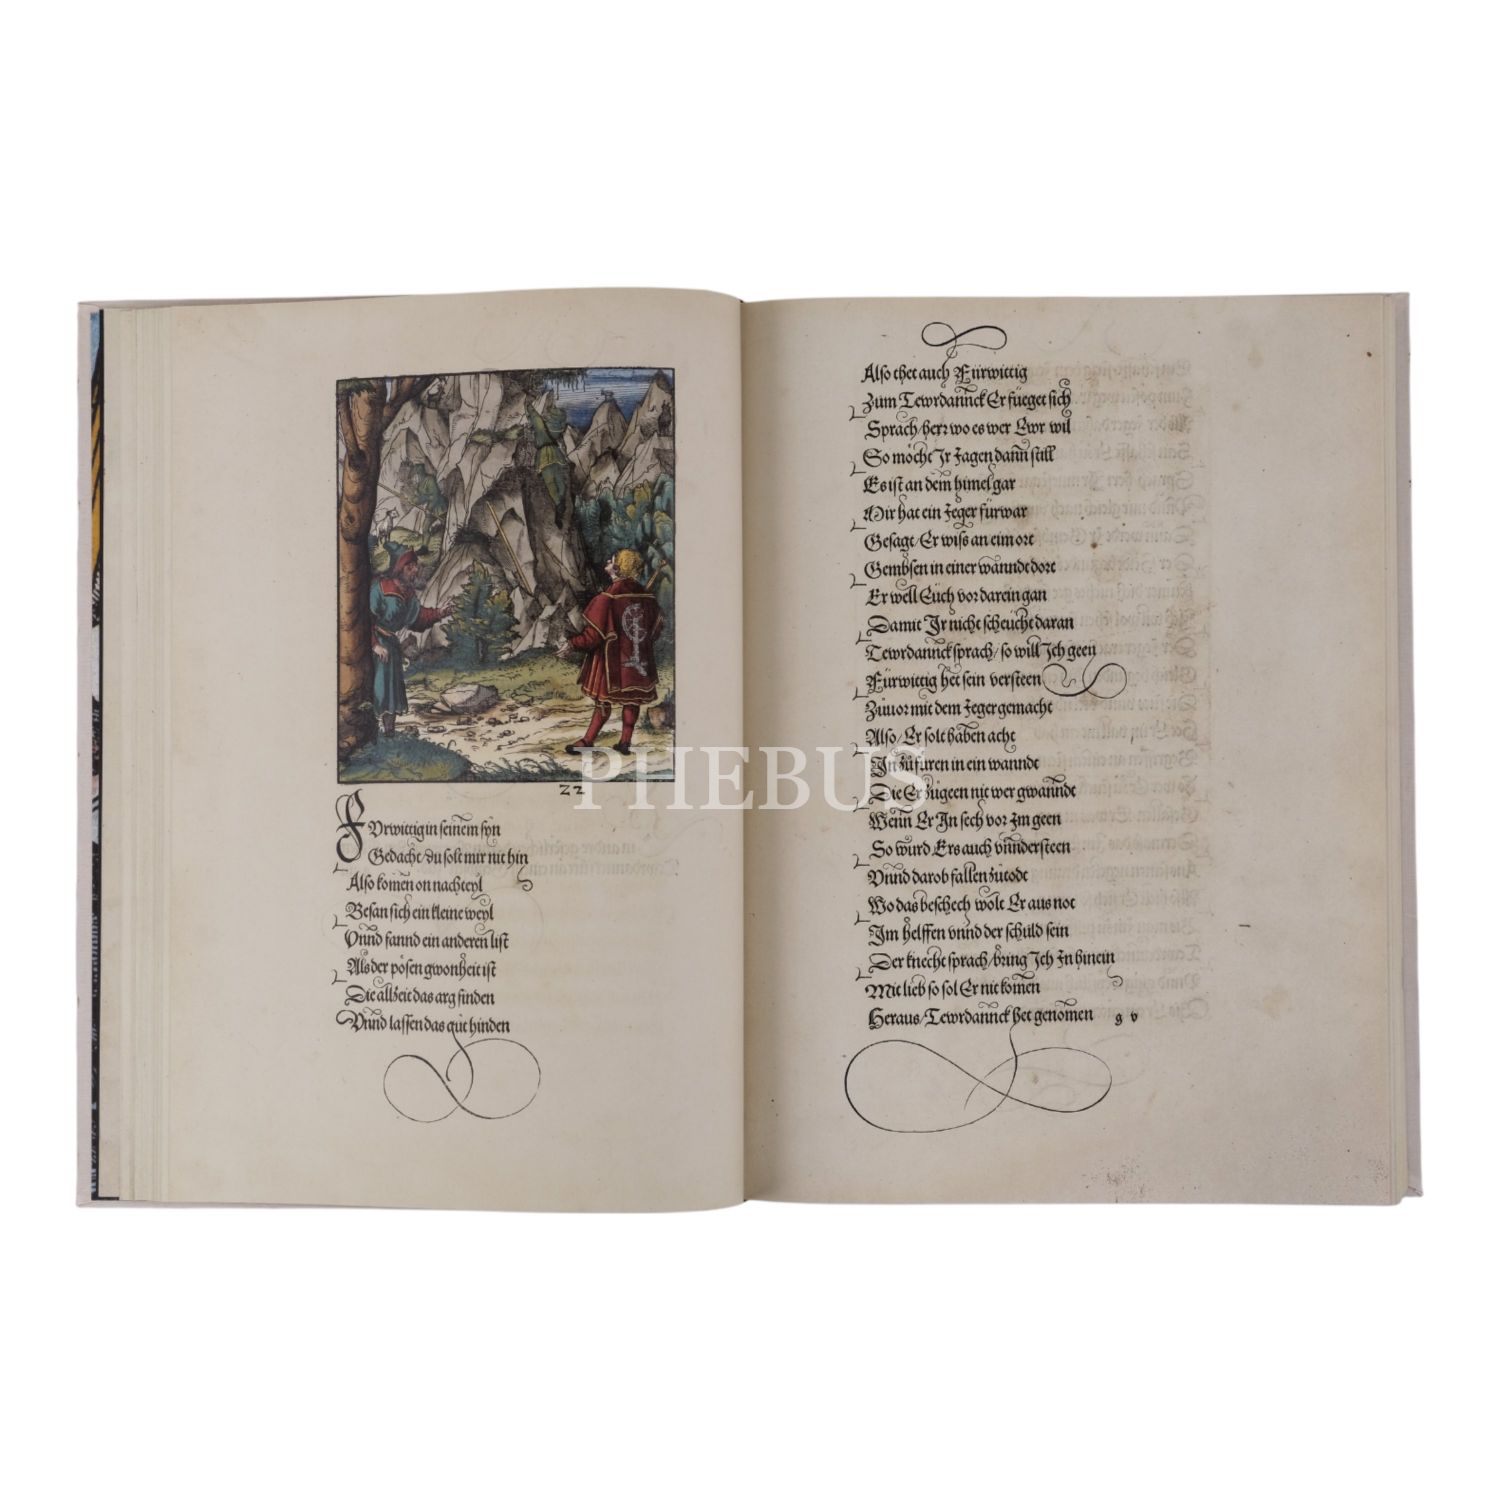 22
Fürwittig in seinem syn
Gedacht/du solt mir nit hin
Also komen on nachteyl
Besan sich ein kleine weyl
Vnnd fannd ein anderen list
Als der pösen gwonheit ist
Die allzeit das arg finden
Vnnd lassen das güt hinden
Also thet auch Fürwittig
Zum Tewrdannck Er füeget sich
Sprach/herr wo es wer Ewr wil
So möcht Ir Jagen dann still
Es ist an dem himel gar
Mir hat ein Jeger fürwar
Gesagt/Er wiss an eim ort
Gembsen in einer wanndt dort
Er well Euch vor darein gan
Damit Ir nicht scheücht daran
Tewrdannck sprach/so will Ich geen
Fürwittig het sein versteen
Züuor mit dem Jeger gemacht
Also/Er solt haben acht
In züfuren in ein wanndt
Die Er zügeen nit wer gwanndt
Wenn Er In sech vor Im geen
So wurd Ers auch vnndersteen
Vnnd darob fallen zütodt
Wo das beschech wolt Er aus not
Im helffen vnnd der schuld sein
Der knecht sprach/bring Ich In hinein
Mit lieb so sol Er nit komen
Heraus/Tewrdannck het genomen
g v
PHEBUS